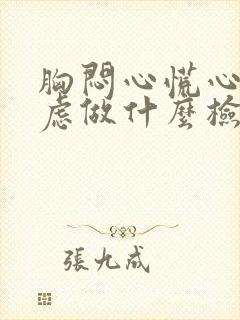 胸悶心慌心
慮做什麼檢
張九成